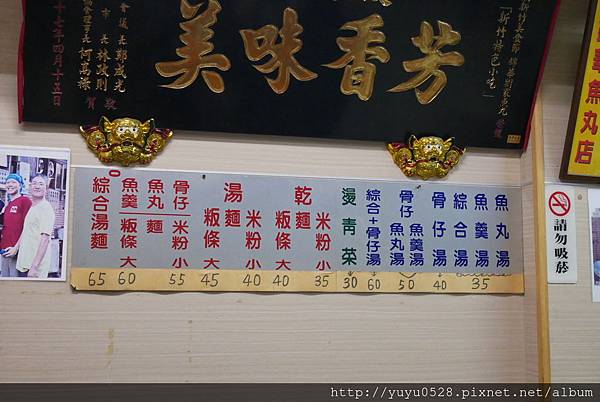 美味香芳
「新竹特色小吃」
會議長 鄭成光
市長 林政則
敬賀
十七年四月十五日
魚丸店
魚丸湯
魚羹湯
綜合湯
35
骨仔湯
40
骨仔 魚羹湯
魚丸湯
50
綜合+骨仔湯
60
燙青菜
30
乾 米粉 小
35
粄條 大
40
湯 米粉 小
40
麵
粄條 大
45
骨仔 米粉 小
55
魚丸 麵
魚羹 粄條 大
60
綜合湯麵
65
請勿吸菸
http://yuyu0528.pixnet.net/album